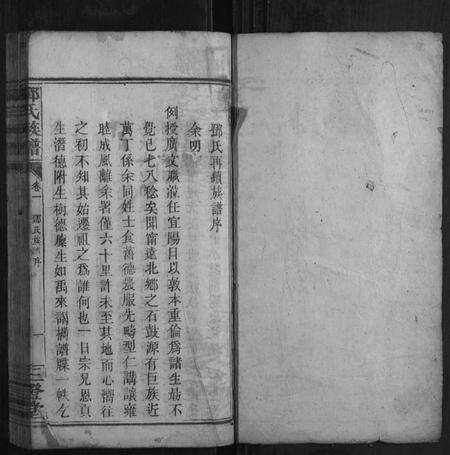 鄧氏再續族譜序
余明
例授廣文職蒞任宜陽日以敦本重倫為諸生勗不
覺已七八稔矣聞甯遠北鄉之石鼓源有巨族近
萬丁係余同姓士食舊德農服先疇型仁講讓雍
睦成風離余署僅六十里許未至其地而心嚮往
之初不知其始遷祖之為誰何也一日宗兄恩貢
生濳德附生樹德廩生如禹來謁攜譜牒一帙乞
鄧氏族譜
卷一
鄧氏族譜序
一